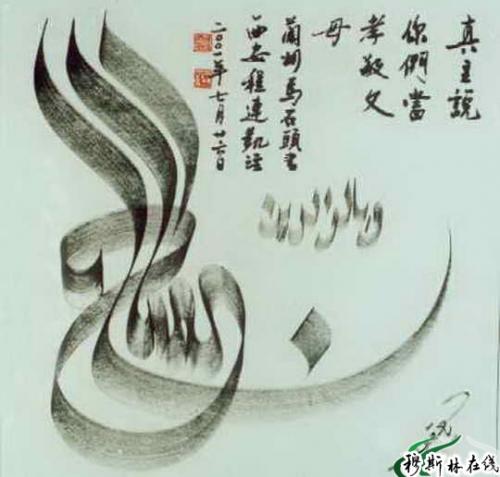 真主說
你們當
孝敬父
母
蘭州馬石頭書
西安程連凱注
二〇〇一年七月廿六日
وبالوالدين
إحسانا
穆斯林在线